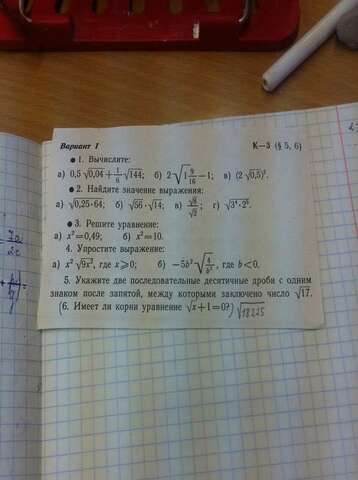 Вариант 1 К—3 (§ 5, 6)
● 1. Вычислите:
а) 0,5 √0,04 + 1/6 √144; б) 2 √(1 9/16) − 1; в) (2 √0,5)².
● 2. Найдите значение выражения:
а) √(0,25·64); б) √56 · √14; в) √8/√2; г) √(3⁴·2⁶).
● 3. Решите уравнение:
а) x² = 0,49; б) x² = 10.
4. Упростите выражение:
а) x² √(9x²), где x ⩾ 0; б) −5b² · √(4/b²), где b < 0.
5. Укажите две последовательные десятичные дроби с одним
знаком после запятой, между которыми заключено число √17.
(6. Имеет ли корни уравнение √x + 1 = 0?) √18225